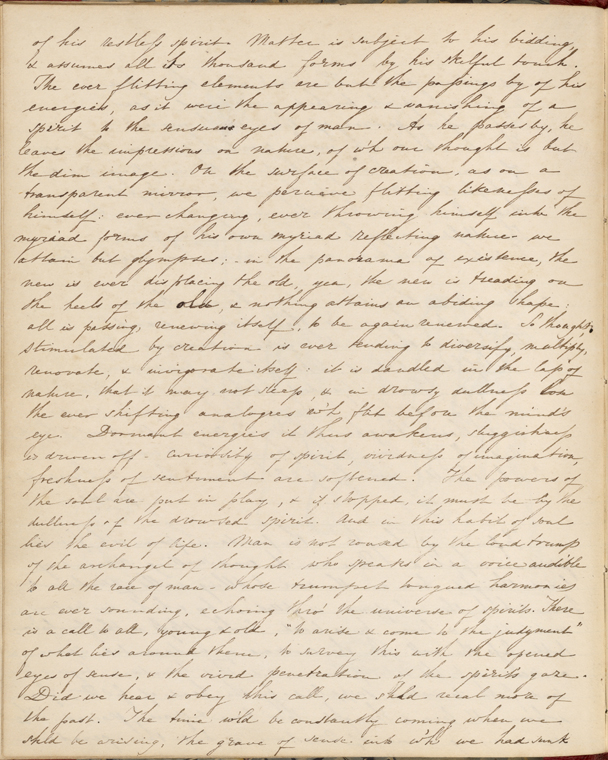 of his restless spirit. Matter is subject to his bidding,
& assumes all its thousand forms by his skilful touch.
The ever flitting elements are but the passings by of his
energies, as it were the appearing & vanishing of a
spirit to the sensuous eyes of man. As he passes by, he
leaves the impressions on nature, of wh our thought is but
the dim image. On the surface of creation, as on a
transparent mirror, we perceive flitting likenesses of
himself: ever changing, ever throwing himself into the
myriad forms of his own myriad reflecting nature. we
attain but glympses; in the panorama of existence, the
new is ever displacing the old, yea, the new is treading on
the heels of the old, & nothing attains an abiding shape;
all is passing, renewing itself, to be again renewed. So thought,
stimulated by creation is ever tending to diversify, multiply,
renovate, & invigorate itself: it is dandled in the lap of
nature, that it may not sleep, & in drowsy dullness
the ever shifting analogies wh flit before the mind's
eye. Dormant energies it thus awakens, sluggishness
is driven off. curiosity of spirit, vividness of imagination,
freshness of sentiment are softened. The powers of
the soul are put in play, & if stopped, it must be by the
dullness of the drowsed spirit. And in this habit of soul
lies the evil of life. Man is not roused by the loud trump
of the archangel of thought who speaks in a voice audible
to all the race of man - whose trumpet tongued harmonies
are ever sounding, echoing thro' the universe of spirits. There
is a call to all, young & old, "to arise & come to the judgment"
of what lies around them, to survey this with the opened
eyes of sense, & the vivid penetration of the spirits gaze.
Did we hear & obey this call, we shld recal more of
the past. The time wld be constantly coming when we
shld be arising, the grave of sense into wh we had sunk